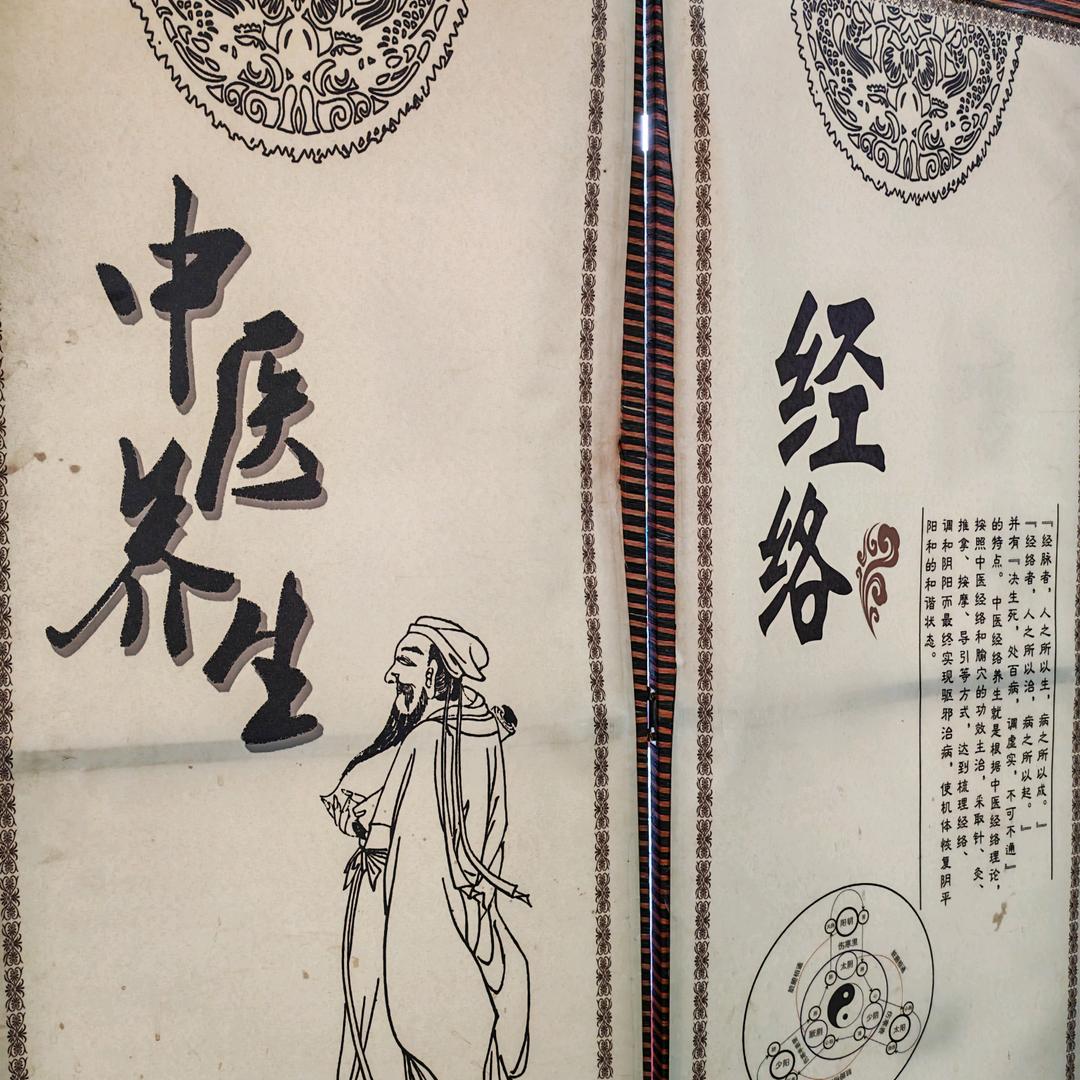 中医
养生
经络
『经脉者，人之所以生，病之所以成。』
『经络者，人之所以治，病之所以起。』
并有『决生死，处百病，调虚实，不可不通』
的特点。中医经络养生就是根据中医经络理论，
按照中医经络和腧穴的功效主治，采取针、灸、
推拿、按摩、导引等方式，达到梳理经络、
调和阴阳而最终实现驱邪治病，使机体恢复阴平
阳和的和谐状态。
阳明
伤寒里
太阴
少阴
厥阴
太阳
少阳